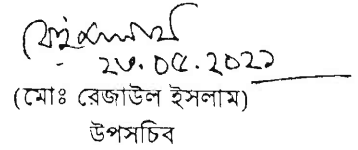 ২৩.০৫.২০২১
(মোঃ রেজাউল ইসলাম)
উপসচিব